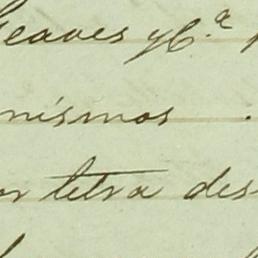 Reaves y C.a
mismos .
or letra des